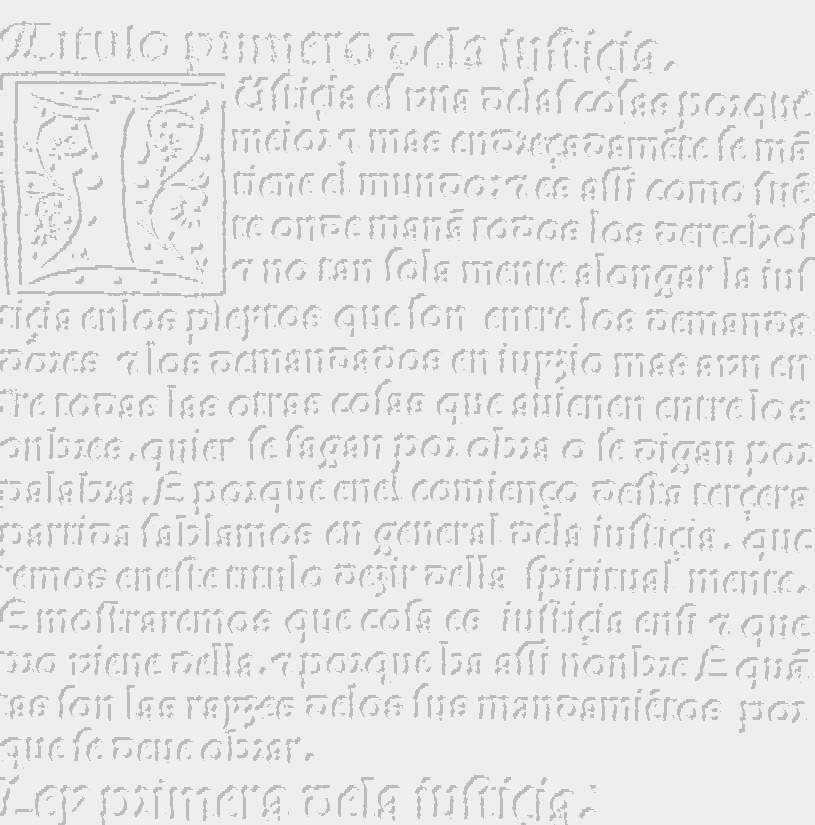 Titulo primero dela iusticia.
IUsticia es vna delas cosas porque
meior ⁊ mas endereçadamẽte se mã
tiene el mundo: ⁊ es assi como fuẽ
te onde manã todos los derechos
⁊ no tan sola mente alongar la ius
ticia enlos pleytos que son entre los demanda
dores ⁊ los demandados en iuyzio mas avn en
tre todas las otras cosas que auienen entre los
onbres. quier se fagan por obra o se digan por
palabra. E porque enel comienço desta tercera
partida fablamos en general dela iusticia. que
remos eneste titulo dezir della spiritual mente.
E mostraremos que cosa es iusticia ensi ⁊ que
pro viene della. ⁊ porque ha assi nonbre E quã
tas son las rayzes delos sus mandamiẽtos por
que se deue obrar.
Ley primera dela iusticia.